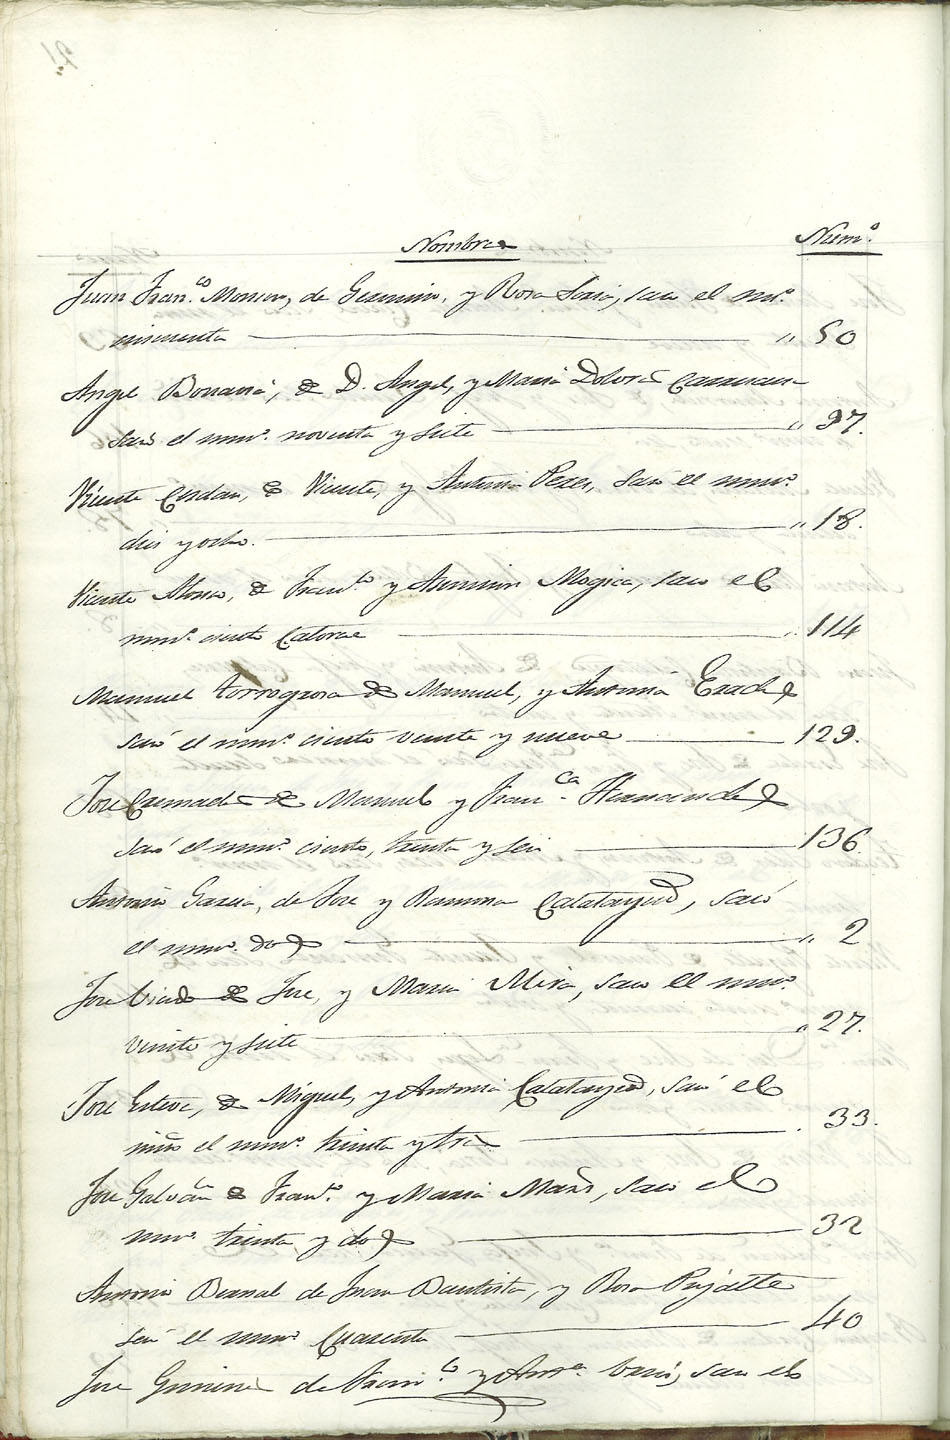 Nombres Num.º
Juan Fran.co Monson, de Geronimo, y Rosa Soria, saco el nu.º
cincuenta " 50
Angel Bonavia, de D. Angel, y Maria Dolores
saco el num.º noventa y siete " 97.
Vicente Cerdan, de Vicente, y Antonia Perez, saco el num.º
dies y ocho. " 18.
Vicente de Fran.co y Asencion Mogica, saco el
num.º ciento Catorce 114
Manuel torregrosa de Manuel, y Antonia
sacó el num.º ciento veinte y nueve 129.
Jose Cremades de Manuel y Fran.ca Hernandez
sacó el num.º ciento, treinta y seis 136
Antonio Garcia, de Jose y Ramona Calatayud, sacó
el num.º dos " 2
Jose de Jose, y Maria Mira, saco el num.º
veinte y siete " 27.
Jose Esteve, de Miguel, y Antonia Calatayud, sacó el
el num.º treinta y tres 33.
Jose Galvañ de Fran.co y Maria Mañs, saco el
num.º treinta y dos 32
Antonio Bernal de Juan Bautista, y Rosa Pujalte
sacó el num.º Cuarenta 40
Jose Gimenez de Fran.co y Ant.a saco el